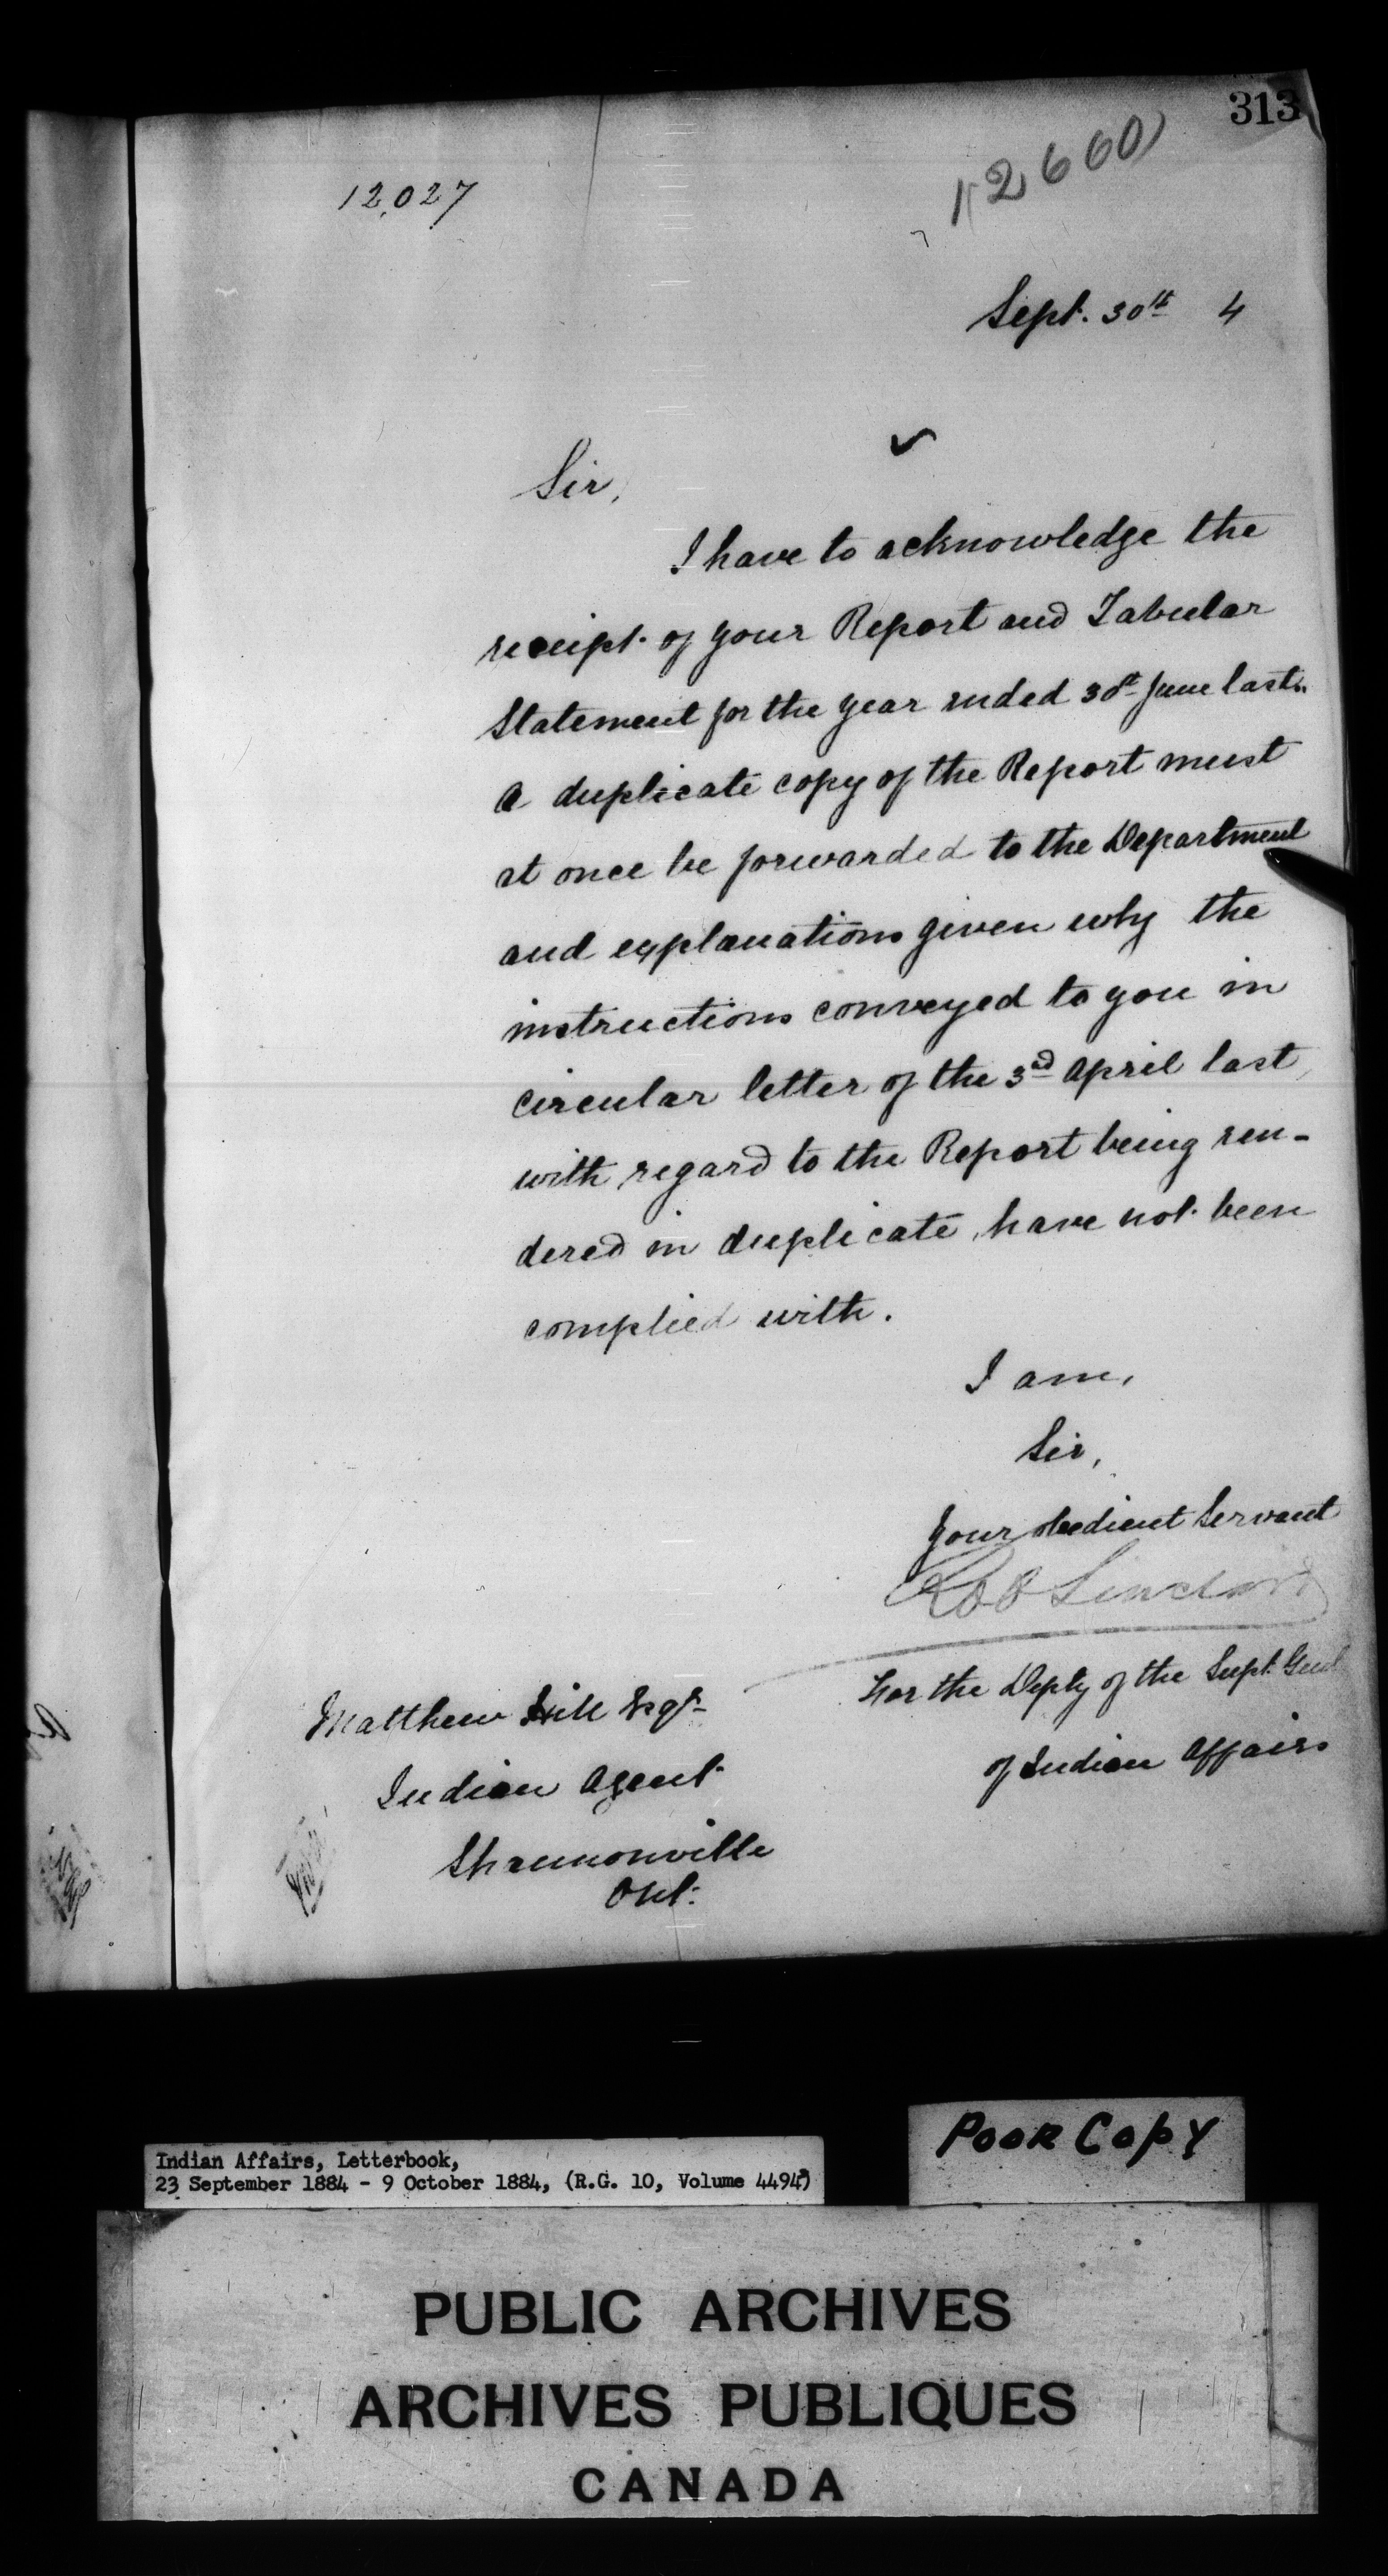 313
12,027
12600
Sept. 30th 4
Sir,
I have to acknowledge the
receipt of your Report and Tabular
Statement for the year ended 30th June last.
A duplicate copy of the Report must
at once be forwarded to the Department
and explanations given why the
instructions conveyed to you in
circular letter of the 3rd April last,
with regard to the Report being ren-
dered in duplicate, have not been
complied with.
I am,
Sir,
Your obedient Servant
Rob Sinclair
For the Depty of the Supt. Genl
of Indian Affairs
Matthew Hill Esqr
Indian Agent
Shannonville
Ont.
Poor Copy
Indian Affairs, Letterbook,
23 September 1884 - 9 October 1884, (R.G. 10, Volume 4494)
PUBLIC ARCHIVES
ARCHIVES PUBLIQUES
CANADA